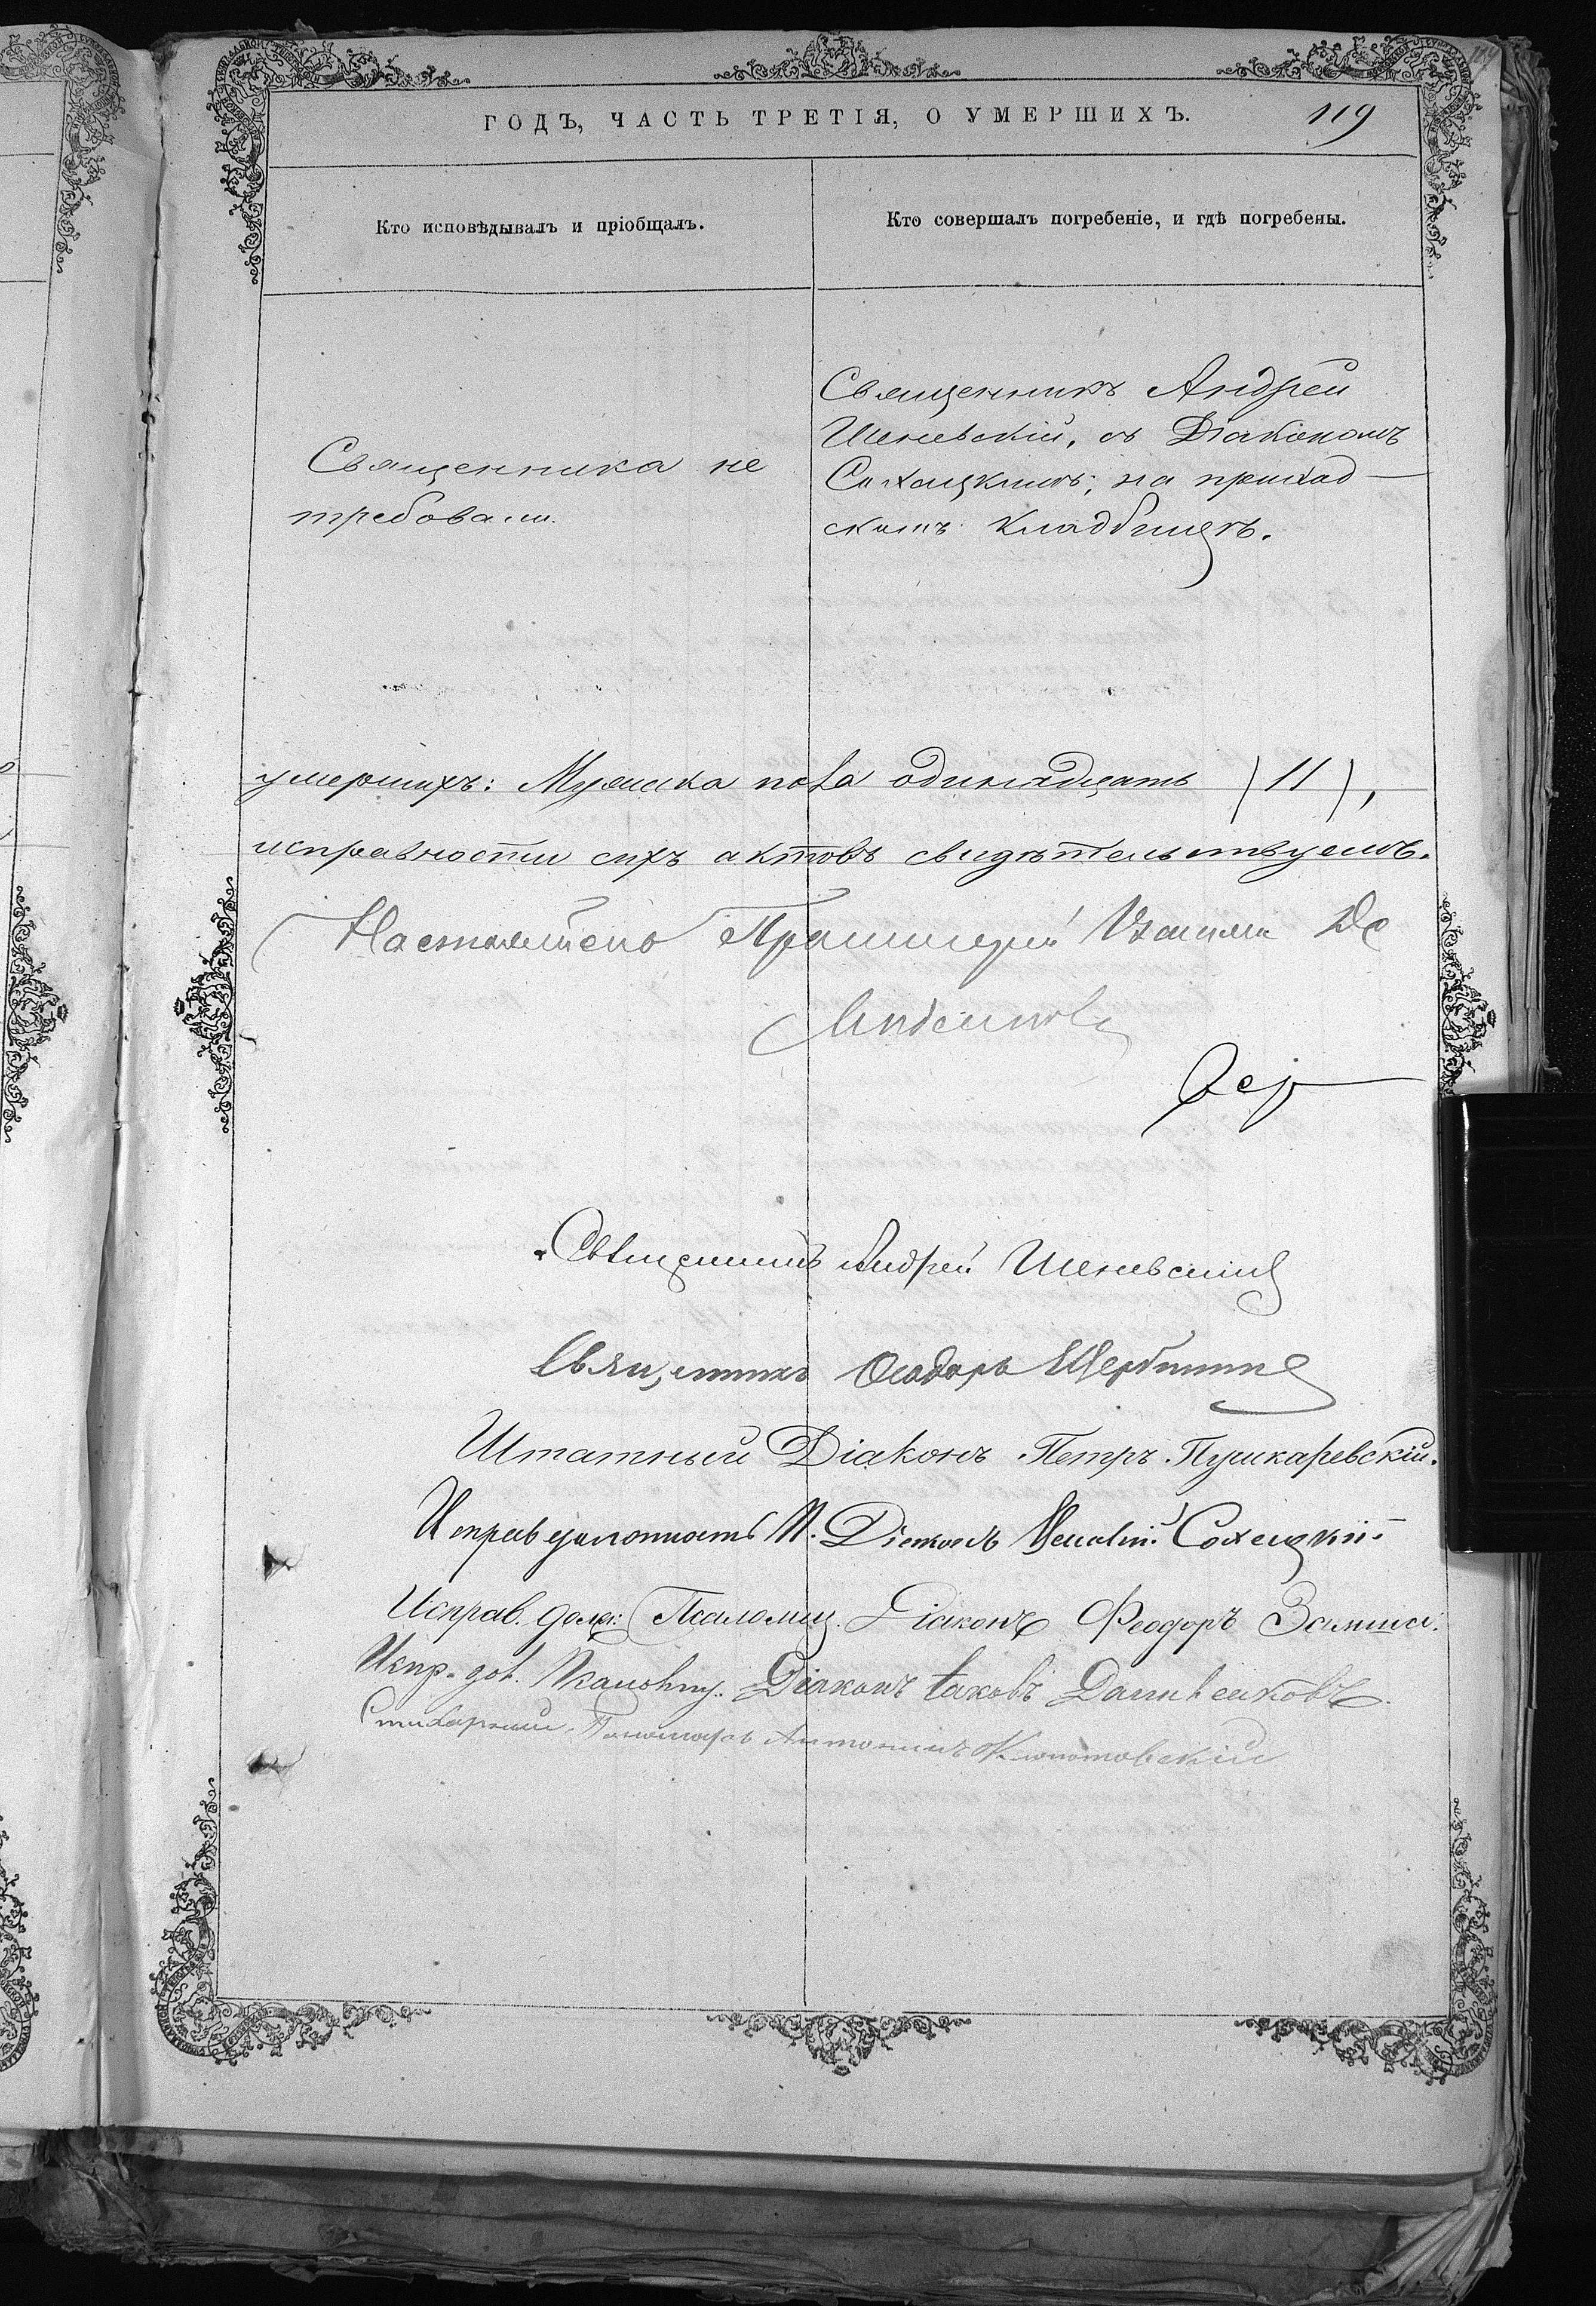 ГОДЪ, ЧАСТЬ ТРЕТІЯ, О УМЕРШИХЪ.
119
Кто исповѣдывалъ и пріобщалъ.
Кто совершалъ погребеніе, и гдѣ погребены.
Священника не
требовали.
Священникъ Андрей
Шеневскій, съ Діакономъ
Сохацкимъ; на приход-
скомъ кладбищѣ.
умершихъ: Мужска пола одинадцать (11),
исправности сихъ актовъ свидѣтельствуемъ.
Настоятель Протоіерей
Священникъ Андрей Шеневскій
Священникъ Ѳеодоръ Щербина
Штатный Діаконъ Петръ Пушкаревскій.
Исправ должность Діаконъ Сохацкій
Исправ. долж: Псаломщ. Діаконъ Феодоръ
Испр. дол. Псаломщ. Діаконъ Іаковъ
Стихарный Пономарь Антоній Клопотовскій